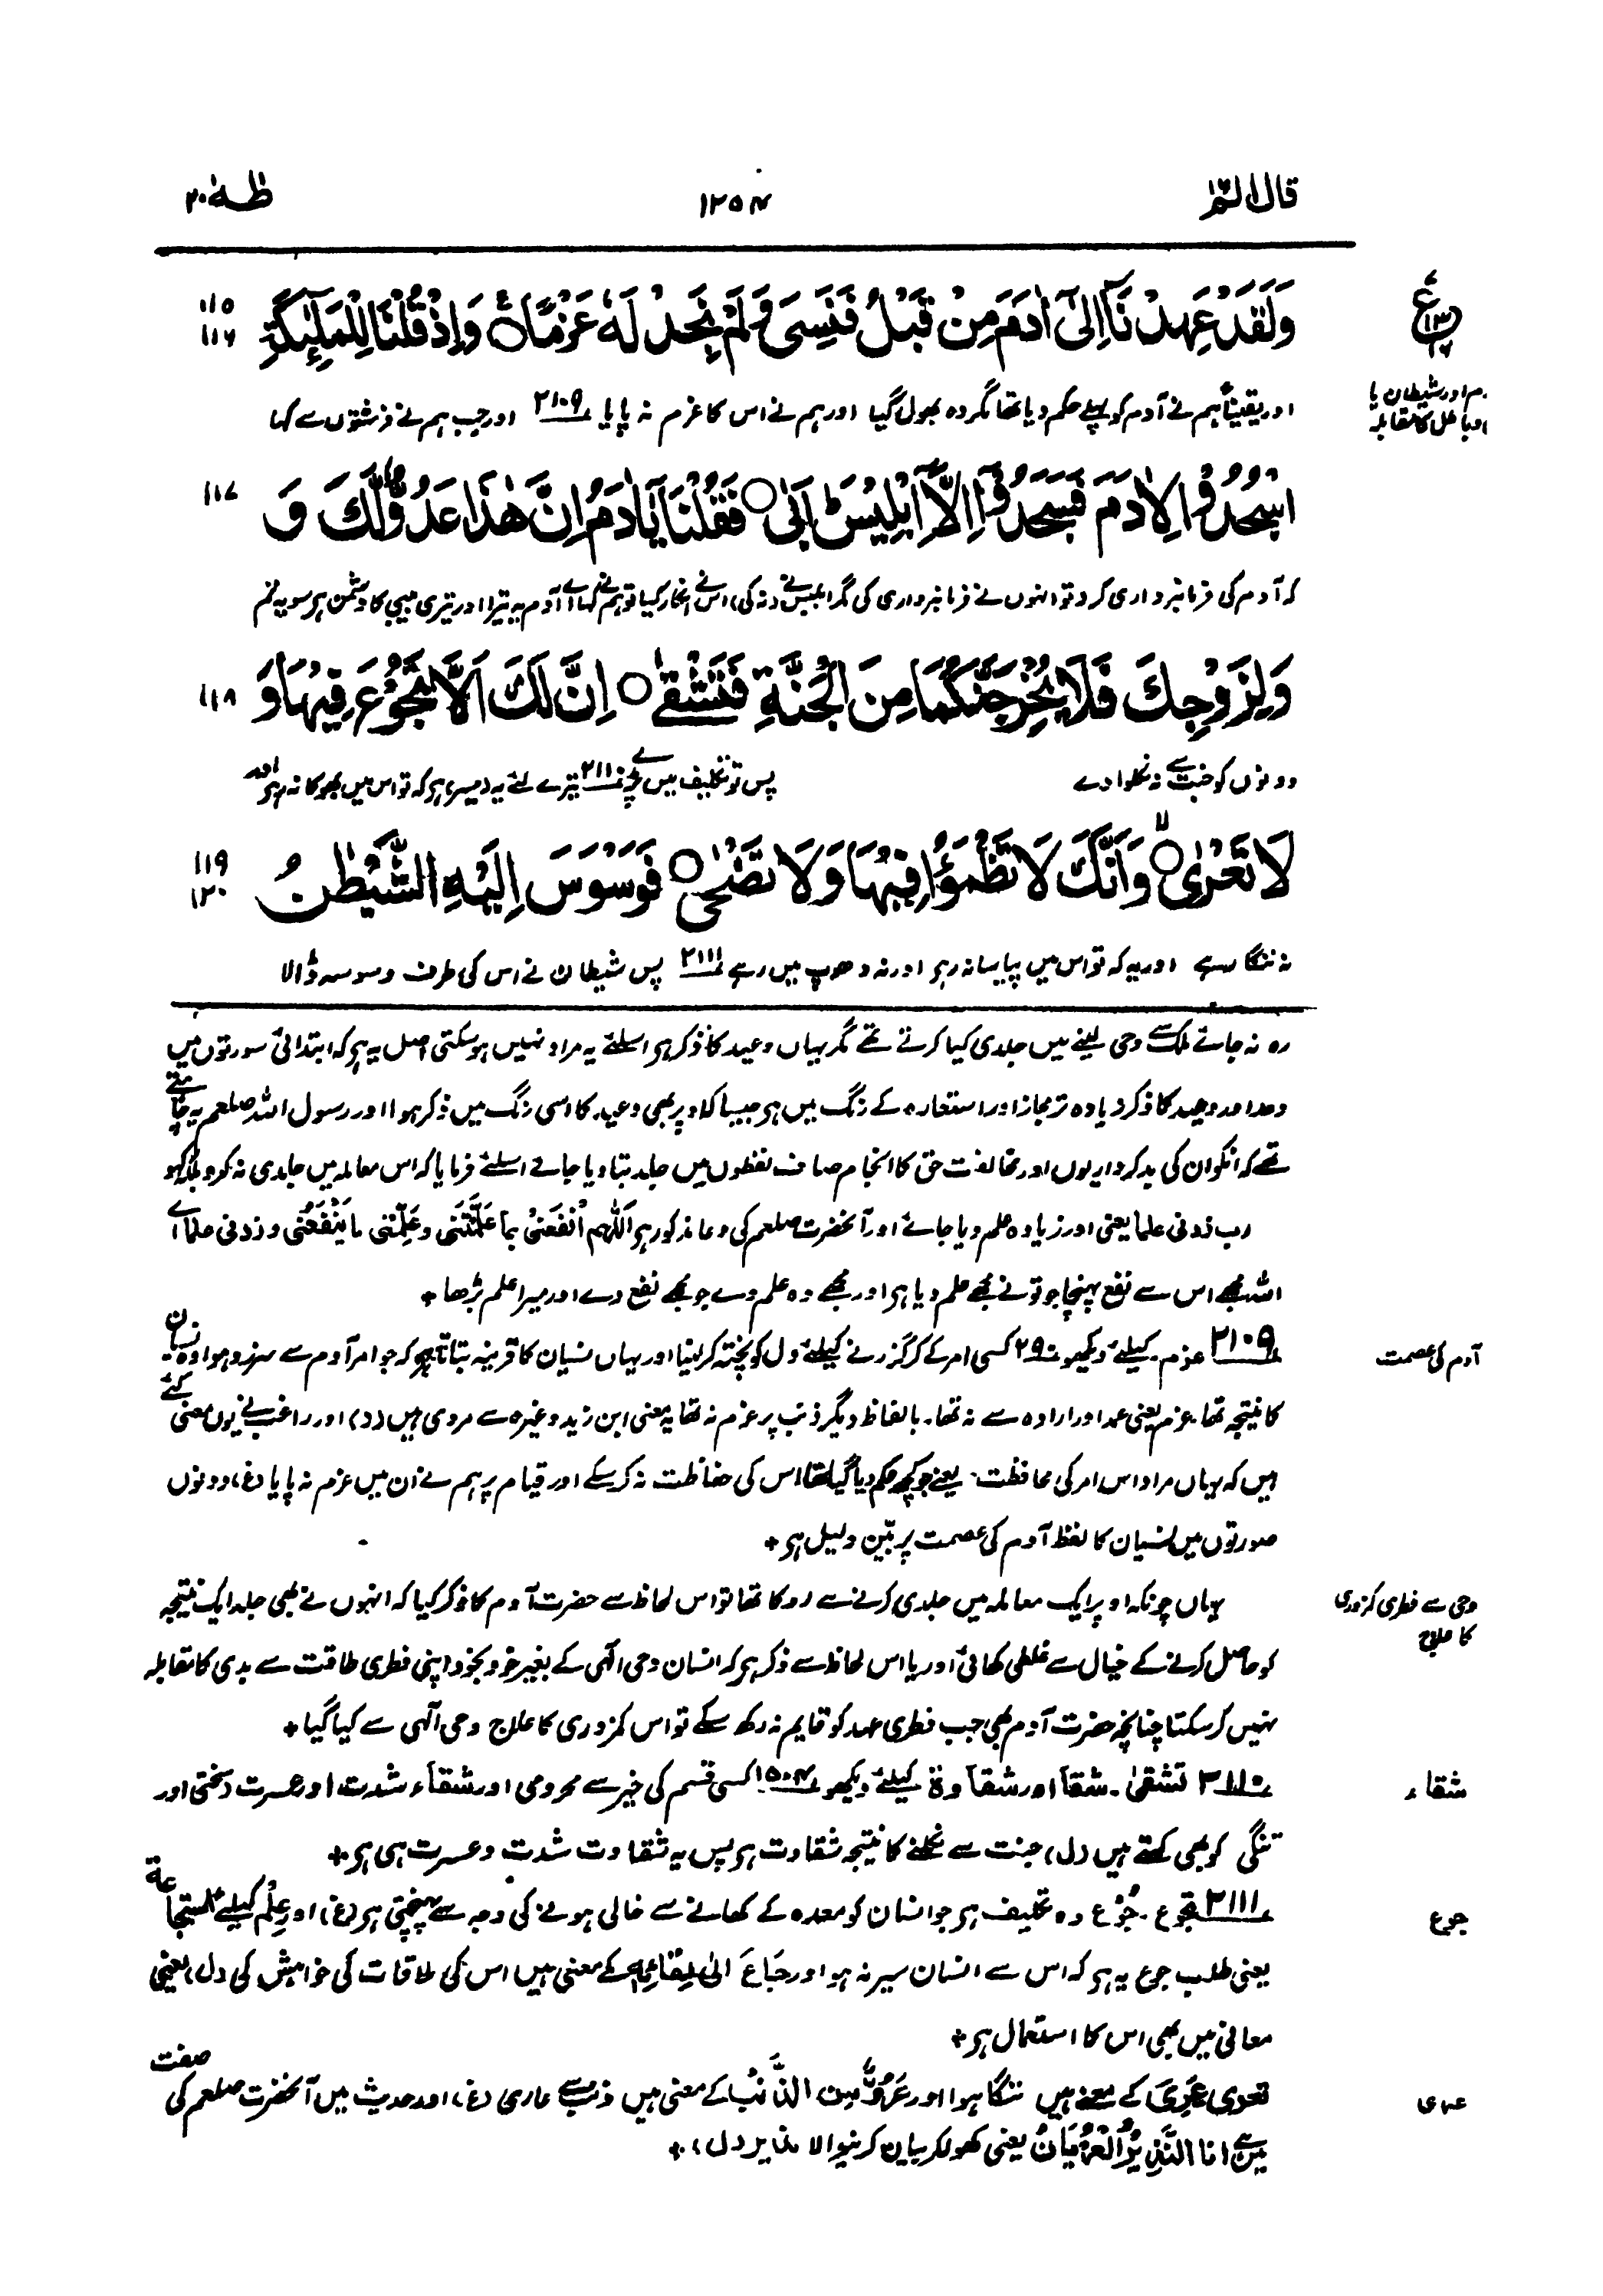 قال الم
۱۲۵۴
طٰهٰ ۲۰
وَلَقَدْ عَهِدْنَآ اِلٰٓى اٰدَمَ مِنْ قَبْلُ فَنَسِىَ وَلَمْ نَجِدْ لَهٗ عَزْمًا ۝ وَاِذْ قُلْنَا لِلْمَلٰٓئِكَةِ
۱۱۵
۱۱۶
ع
اور یقیناً ہم نے آدم کو پہلے حکم دیا تھا مگر وہ بھول گیا اور ہم نے اس کا عزم نہ پایا ۲۱۰۹ اور جب ہم نے فرشتوں سے کہا
دم اور شیطان یا
وباطل کا مقابلہ
اسْجُدُوْا لِاٰدَمَ فَسَجَدُوْٓا اِلَّآ اِبْلِيْسَ ؕ اَبٰى ۝ فَقُلْنَا يٰٓاٰدَمُ اِنَّ هٰذَا عَدُوٌّ لَّكَ وَ
۱۱۷
کہ آدم کی فرمانبرداری کرو تو انہوں نے فرمانبرداری کی مگر ابلیس نے (نہ کی) اس نے انکار کیا تو ہم نے کہا اے آدم یہ تیرا اور تیری بیبی کا دشمن ہر سو یہ تم
وَلِزَوْجِكَ فَلَا يُخْرِجَنَّكُمَا مِنَ الْجَنَّةِ فَتَشْقٰى ۝ اِنَّ لَكَ اَلَّا تَجُوْعَ فِيْهَا وَ
۱۱۸
دونوں کو جنت سے نہ نکلوا دے پس تو تکلیف میں پڑے ۲۱۱۰ تیرے لئے یہ (میسر) ہر کہ تو اس میں بھوکا نہ رہر اور
لَا تَعْرٰى ۝ وَاَنَّكَ لَا تَظْمَؤُا فِيْهَا وَلَا تَضْحٰى ۝ فَوَسْوَسَ اِلَيْهِ الشَّيْطٰنُ
۱۱۹
۱۲۰
نہ ننگا رہے اور یہ کہ تو اس میں پیاسا نہ رہر اور نہ دھوپ میں رہے ۲۱۱۱ پس شیطان نے اس کی طرف وسوسہ ڈالا
رہ نہ جائے ملک سے وحی لینے میں جلدی کیا کرتے تھے مگر یہاں وعید کا ذکر ہر اسلئے یہ مراد نہیں ہو سکتی اصل یہ ہر کہ ابتدائی سورتوں میں
وعدا ور وعید کا ذکر زیادہ تر مجاز اور استعارہ کے رنگ میں ہر جیسا کہ اوپر بھی وعید کا اسی رنگ میں ذکر ہوا اور رسول اللہ صلعم یہ چاہتے
تھے کہ انکو ان کی بدکرداریوں اور مخالفت حق کا انجام صاف لفظوں میں جلد بتا دیا جائے اسلئے فرمایا کہ اس معاملہ میں جلدی نہ کرو بلکہ کہو
رب زدنی علما یعنی اور زیادہ علم دیا جائے اور آنحضرت صلعم کی دعا مذکور ہر اَللّٰهم اْنفَعَنیْ بما عَلَّمْتَنی وعَلِّمْنی ما یَنْفَعُنی وزدنی علماً اے
اللہ مجھے اس سے نفع پہنچا جو تو نے مجھے علم دیا ہر اور مجھے وہ علم دے جو مجھے نفع دے اور میرا علم بڑھا ٭
۲۱۰۹ عزم۔ کیلئے دیکھو ۲۹۰ کسی امر کے کر گزرنے کیلئے دل کو پختہ کر لینا اور یہاں نسیان کا قرینہ بتاتا ہر کہ جو امر آدم سے سرزد ہوا وہ نسیان
آدم کی عصمت
کا نتیجہ تھا۔ عزم یعنی عمد اور ارادہ سے نہ تھا۔ بالفاظ دیگر ذنب پر عزم نہ تھا یہ معنی ابن زید وغیرہ سے مروی ہیں (د) اور راغب نے یوں معنی کئے
ہیں کہ یہاں مراد اس امر کی محافظت۔ یعنے جو کچھ حکم دیا گیا تھا اس کی حفاظت نہ کر سکے اور قیام پر ہم نے ان میں عزم نہ پایا (غ) دونوں
صورتوں میں نسیان کا لفظ آدم کی عصمت پر بیّن دلیل ہر ٭
یہاں چونکہ اوپر ایک معاملہ میں جلدی کرنے سے روکا تھا تو اس لحاظ سے حضرت آدم کا ذکر کیا کہ انہوں نے بھی جلد ایک نتیجہ
وحی سے فطری کمزوری
کا علاج
کو حاصل کرنے کے خیال سے غلطی کھائی اور یا اس لحاظ سے ذکر ہر کہ انسان وحی الٰہی کے بغیر خود بخود اپنی فطری طاقت سے بدی کا مقابلہ
نہیں کر سکتا چنانچہ حضرت آدم بھی جب فطری عہد کو قایم نہ رکھ سکے تو اس کمزوری کا علاج وحی الٰہی سے کیا گیا ٭
۲۱۱۰ تشقیٰ۔ شقاً اور شقاوة کیلئے دیکھو ۱۵۰۴ کسی قسم کی خیر سے محرومی اور شقاء شدت اور عسرت (سختی اور
شقاء
تنگی کو بھی کہتے ہیں (ل) جنت سے نکلنے کا نتیجہ شقاوت ہر پس یہ شقاوت شدت و عسرت ہی ہر ٭
۲۱۱۱ تجوع۔ جُوْع وہ تکلیف ہر جو انسان کو معدہ کے کھانے سے خالی ہونے کی وجہ سے پہنچتی ہر (غ) اور عِلم کیلئے استجاعة
جوع
یعنی طلب جوع یہ ہر کہ اس سے انسان سیر نہ ہو اور جَاعَ الیٰ لِقَائِه کے معنی ہیں اس کی ملاقات کی خواہش کی (ل) یعنی
معانی میں بھی اس کا استعمال ہر ٭
تعری عَرِیَ کے معنے ہیں ننگا ہوا اور عَرُوٌّ من الذَّنْب کے معنی ہیں ذنب سے عاری (غ) اور حدیث میں آنحضرت صلعم کی صفت
عری
میں ہے انا النَّذِیْرُ الْعُرْیَانُ یعنی کھولکر بیان کرنیوالا نذیر (ل) ٭